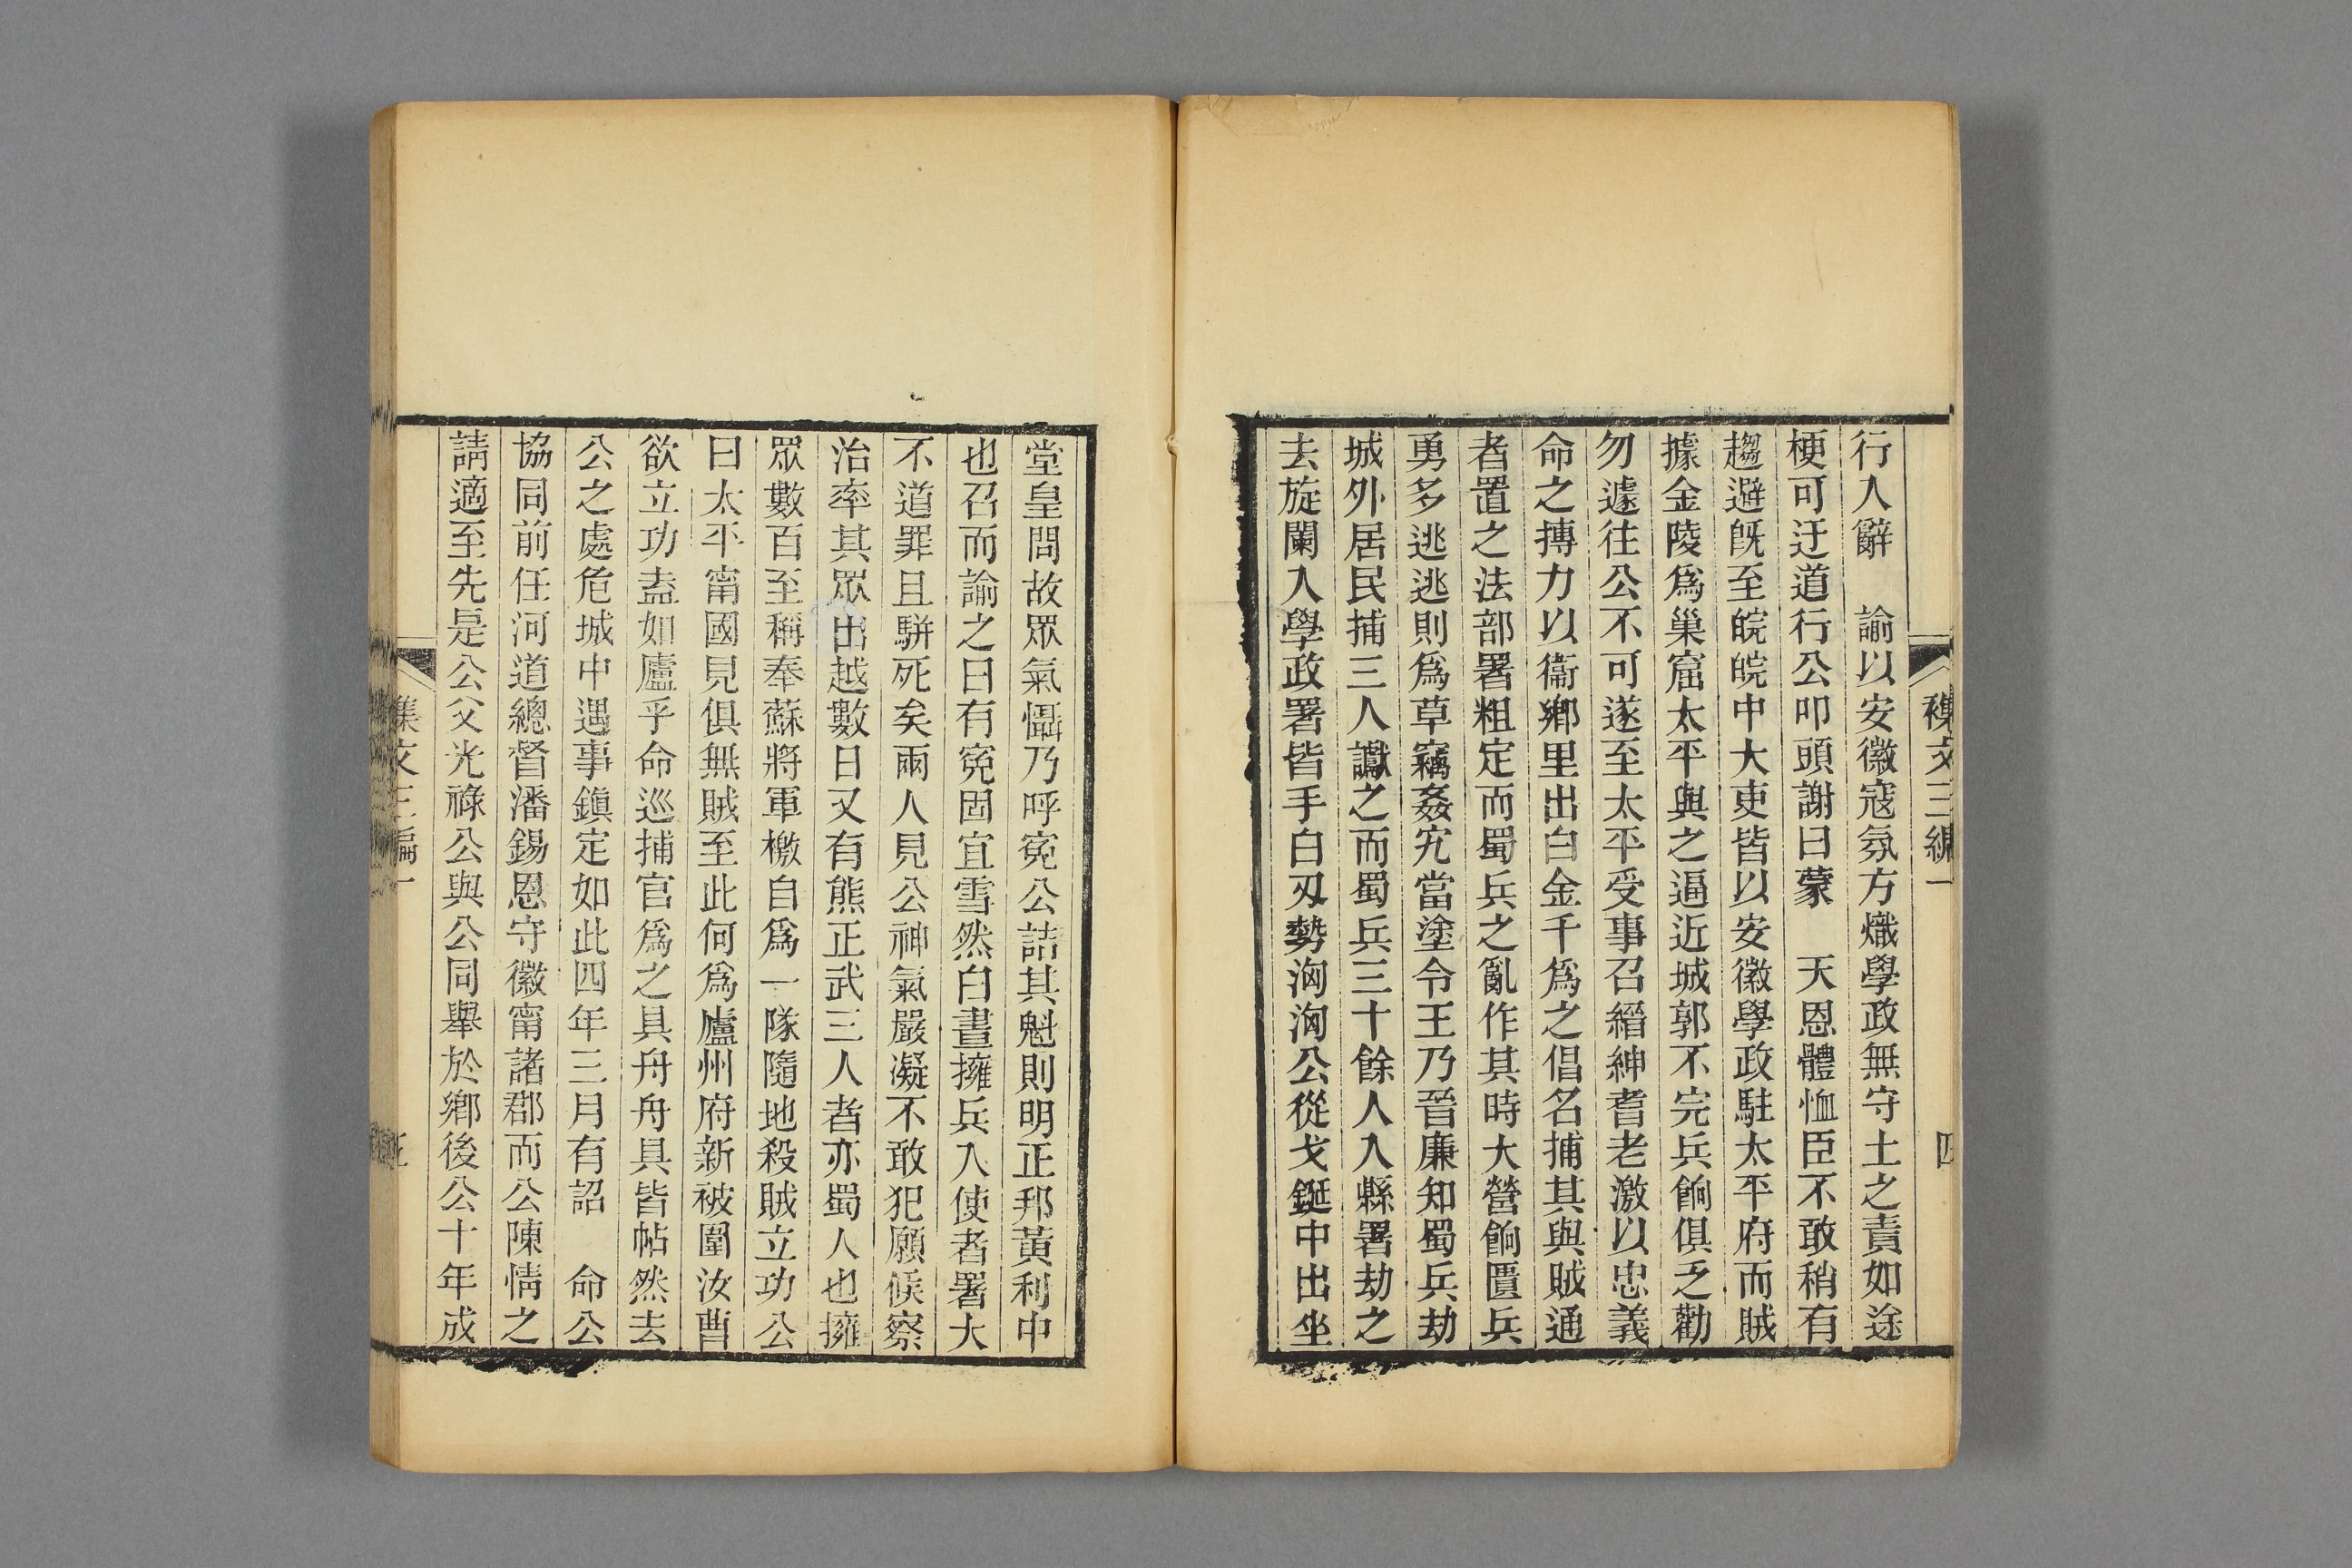 行入辭　諭以安徽寇氛方熾學政無守土之責如途
梗可迂道行公叩頭謝曰蒙　天恩體恤臣不敢稍有
趨避既至皖皖中大吏皆以安徽學政駐太平府而賊
據金陵爲巢窟太平與之逼近城郭不完兵餉俱乏勸
勿遽往公不可遂至太平受事召縉紳耆老激以忠義
命之摶力以衞鄉里出白金千爲之倡名捕其與賊通
者置之法部署粗定而蜀兵之亂作其時大營餉匱兵
勇多逃逃則爲草竊姦宄當塗令王乃晉廉知蜀兵劫
城外居民捕三人讞之而蜀兵三十餘人入縣署劫之
去旋闌入學政署皆手白刃勢洶洶公從戈鋋中出坐
堂皇問故眾氣懾乃呼寃公詰其魁則明正邦黃利中
也召而諭之曰有寃固宜雪然白晝擁兵入使者署大
不道罪且駢死矣兩人見公神氣嚴凝不敢犯願候察
治率其眾出越數日又有熊正武三人者亦蜀人也擁
眾數百至稱奉蘇將軍檄自爲一隊隨地殺賊立功公
曰太平甯國見俱無賊至此何爲廬州府新被圍汝曹
欲立功盍如廬乎命巡捕官爲之具舟舟具皆帖然去
公之處危城中遇事鎭定如此四年三月有詔　命公
協同前任河道總督潘錫恩守徽甯諸郡而公陳情之
請適至先是公父光祿公與公同舉於鄉後公十年成
文三編一
四
集文三編一